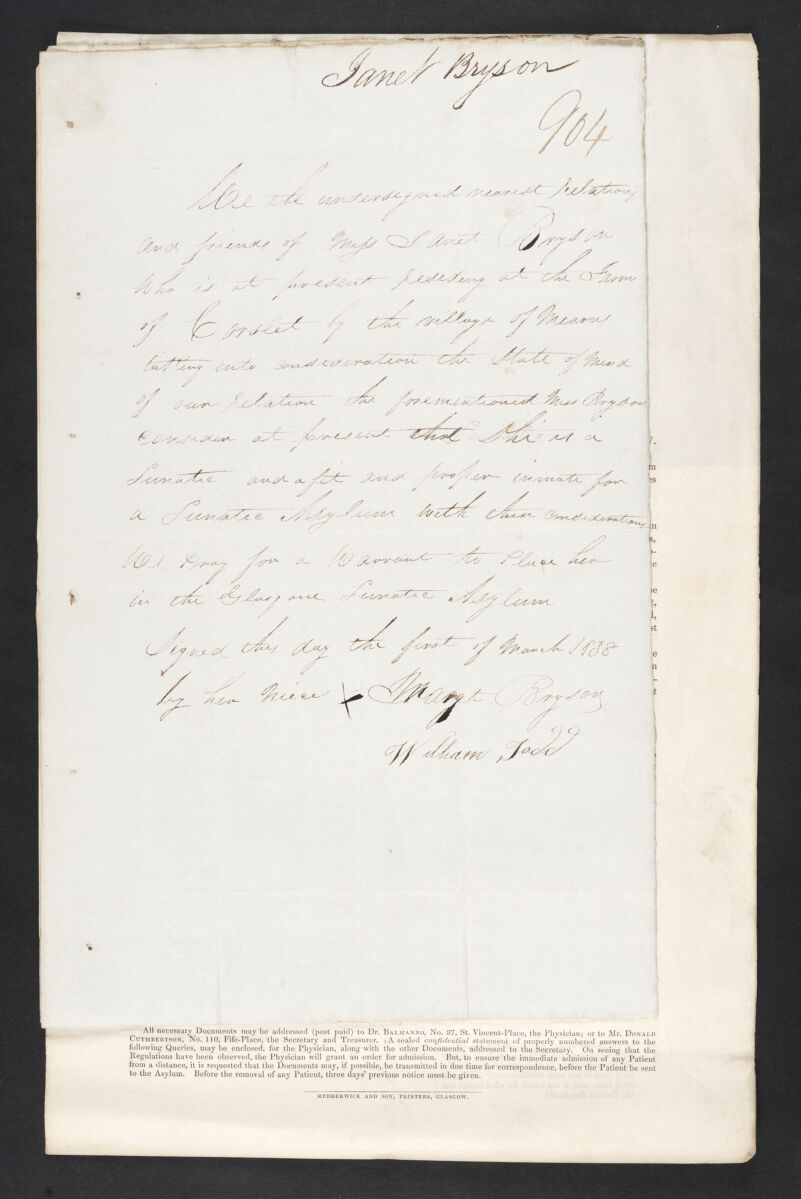 Janet Bryson
904
We the undersigned nearest Relations
and friends of Miss Janet Bryson
Who is at present Residing at the Farm
of Corslet by the village of Mearns
taking into consideration the State of Mind
of our Relation the forementioned Miss Bryson
consider at present that She is a
Lunatic and a fit and proper inmate for
a Lunatic Asylum with this consideration
We Pray for a Warrant to Place her
in the Glasgow Lunatic Asylum
Signed this day the first of March 1838
by her Nieces X Margt Bryson
William Todd
All necessary Documents may be addressed (post paid) to Dr. BALMANNO, No. 37, St. Vincent-Place, the Physician; or to Mr. DONALD
CUTHBERTSON, No. 110, Fife-Place, the Secretary and Treasurer. A sealed confidential statement of properly numbered answers to the
following Queries, may be enclosed, for the Physician, along with the other Documents, addressed to the Secretary. On seeing that the
Regulations have been observed, the Physician will grant an order for admission. But, to ensure the immediate admission of any Patient
from a distance, it is requested that the Documents may, if possible, be transmitted in due time for correspondence, before the Patient be sent
to the Asylum. Before the removal of any Patient, three days' previous notice must be given.
HEDDERWICK AND SON, PRINTERS, GLASGOW.